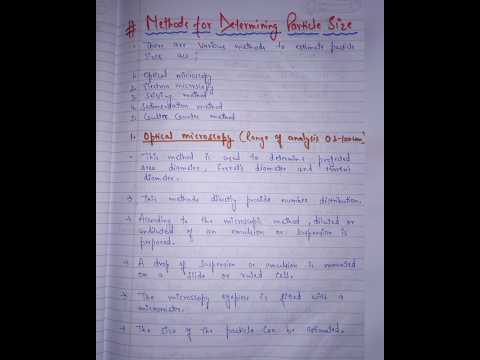 # Methods for Determining Particle Size
There are various methods to estimate particle
sizes are :
1. Optical microscopy
2. Electron microscopy
3. Seiving method
4. Sedimentation method
5. Coulter Counter method
1. Optical microscopy (range of analysis 0.2-100um)
This method is used to determine projected
area diameter, Feret's diameter and
diameter.
→ This methods directly provide number distribution.
→ According to the microscopic method, diluted or
undiluted of an emulsion or suspension is
prepared.
→ A drop of suspension or emulsion is mounted
on a slide or ruled cell.
→ The microscopy eyepiece is fitted with a
micrometer.
→ The size of the particle can be estimated.